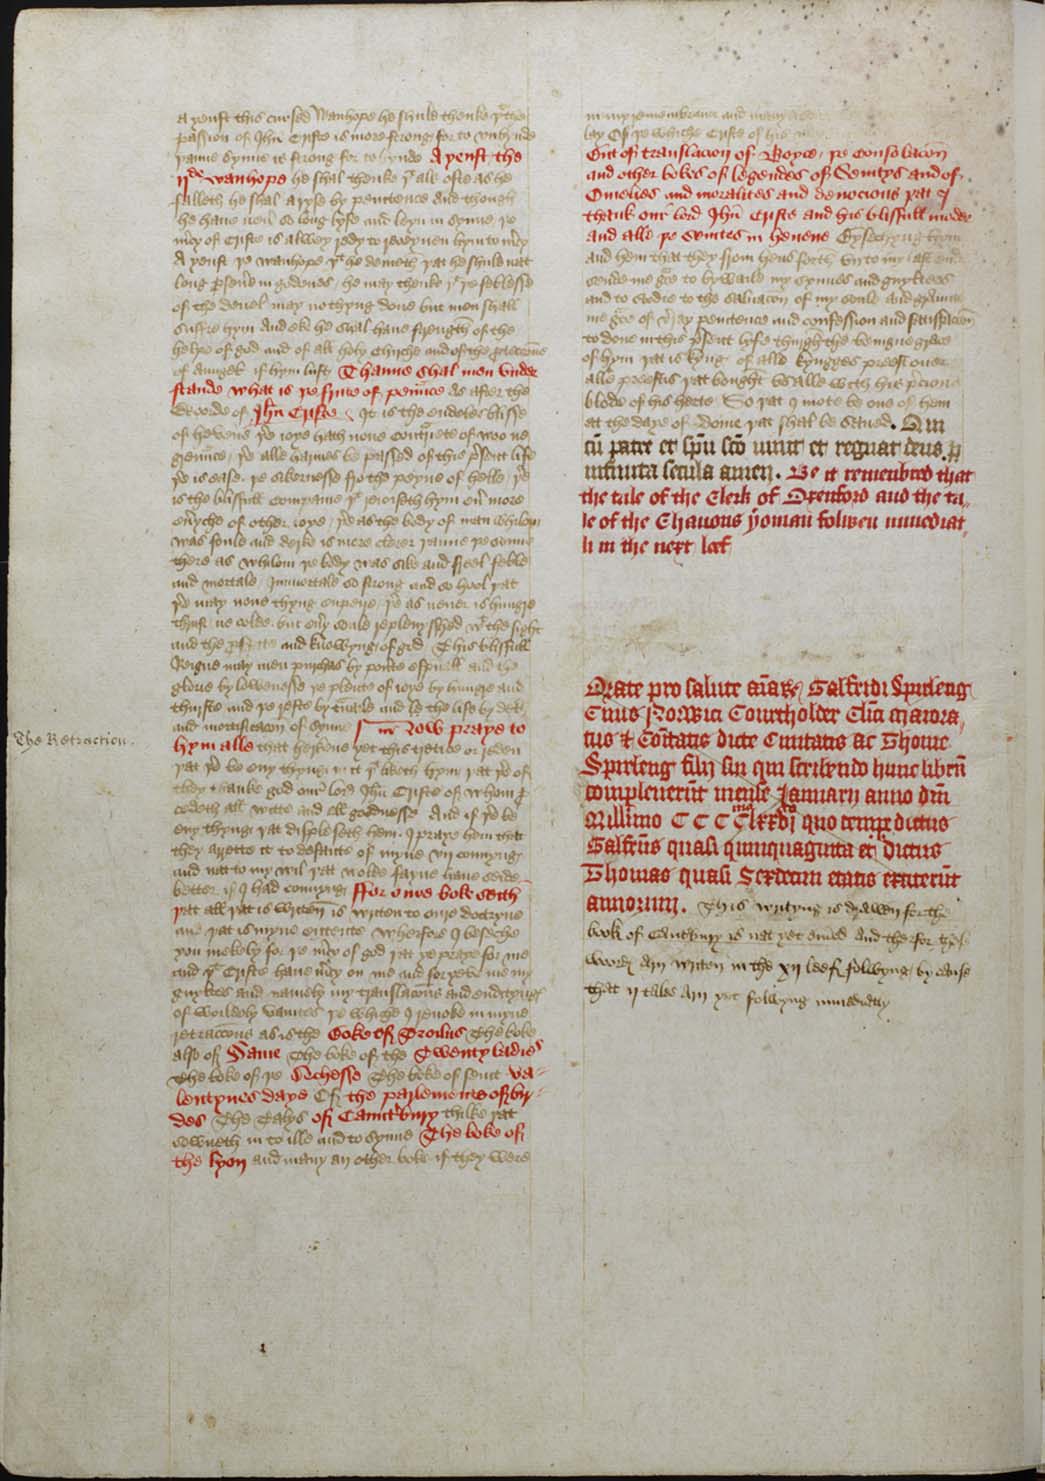 a yenst this cursed Wanhope he shuld thenke þt the
passion of Jhu Criste is more strong for to vnbynde
þanne synne is strong for to bynde A yenst the
ijde wanhope he shal thenke þt als ofte as he
falleth he shal aryse by penitence And though
he haue neuer so long lyfe and leyn in synne þe
mercy of Criste is alwey redy to receyuen hym to mercy
A yenst þe wanhope þt he demeth þat he shuld nat
long perseuere in godenes he may thenke þt þe feblesse
of the deuel may no thyng done but men shall
suffre hym And eke he shal haue strength of the
helpe of god and of all holy Chirche and of the
of aungels if hym lust Thanne shal men vnder
stande what is þe frute of penance as after the
Worde of Jhu Criste It is the endeles blisse
of hevene þer ioye hath none contrariete of woo ne
greuance þer alle harmes be passed of this present life
þer is ease þe sikernesse fro the peyne of helle þer
is the blisfull companie þt reioiseth hym euer more
eueryche of other ioye þer as the body of man whilom
was foule and derke is more clerer þanne þe sonne
there as whilom þe body was sike and freel feble
and mortale Immortale so strong and so hool þat
þer may none thyng enpeire þer as neuer is hungre
thurst ne colde but euery soule replenysshed wt the sight
and the and knowyng of god This blisfull
Reigne may men purchas by pouerte espirituell and the
glorie by lowenesse þe plente of ioye by hungre and
thurste and þe reste by trauaile and the life by deth
and mortificacon of synne Now praye to
hym alle that herkene yet this tretice or reden
þat þer be eny thyng in it þt liketh hym þat þer of
they thanke god our lord Jhu Criste of whom pro
cedeth all witte and all goodnesse And if þer be
eny thyng þat displeseth hem I praye hem that
they arette it to defaute of myne vn connyng
and nat to my wil þat wolde fayne haue seide
better if I had connyng ffor oure boke seith
þat all þat is writen is writen to oure doctryne
and þat is myne entente Wherfore I beseche
you mekely for þe mercy of god þat ye praye for me
and þt Criste haue mercy on me and foryeue me my
gyltes and namely my translacons and enditynges
of worldely vanites þe whiche I reuoke in myne
retraccons as is the Boke of Troilus The boke
also of Fame The boke of the Twenty ladies
The boke of þe Duchesse The boke of seint Va-
lentynes daye Of the parlement of bir-
des The Talys of Caunterbury thilke þat
sowneth in to ille and to synne The boke of
the lyon and many an other boke if they were
The Retraction.
in my remembrance and many
lay Of þe whiche Criste of his
But of translacion of Boyce, þe Consolacon
and other bokes of legendes of Seintys and of
Omelies and moralites and deuocions þat I
thank our lord Jhu Criste and his blisfull moder
and alle þe Seintes in heuene Bysechyng hym
and hem that they from hens forth vn to my last ende
sende me grace to bywaile my synnes and gyltees
and to stodie to the saluacon of my soule and graunte
me grace of verray penitence and confession and satisfaccon
to done in this present lyfe thurgh the benigne grace
of hym þat is kyng of alle kynges preest ouer
alle preestis þat bought vs alle with his precious
blode of his herte So þat I mote be one of hem
at the daye of dome þat shal be saued. Qui
cum patre et spu sco viuit et regnat deus. per
infinita secula amen. Be it remembred that
the tale of the Clerk of Oxenford and the ta-
le of the Chanons yoman folwen immediat-
li in the next leef
Orate pro salute animarum Galfridi Spirleng
Ciuis Norwici Courtholder Clici maiora-
tus & Comitatis dicte Ciuitatis ac Thome
Spirleng filij sui qui scribendo hunc librum
compleuerunt mense Januarij anno dni
Millimo CCCCmo lxxvjto quo tempore dictus
Galfridus quasi quinquaginta et dictus
Thomas quasi Sexdecim etatis extiterunt
annorum. This writyng is drawen for the
book of Cauntbury is nat yet ended And ther for these
wordes Arn writen in the xij leef folwyng by cause
that ij tales Arn yet folwyng immediatly